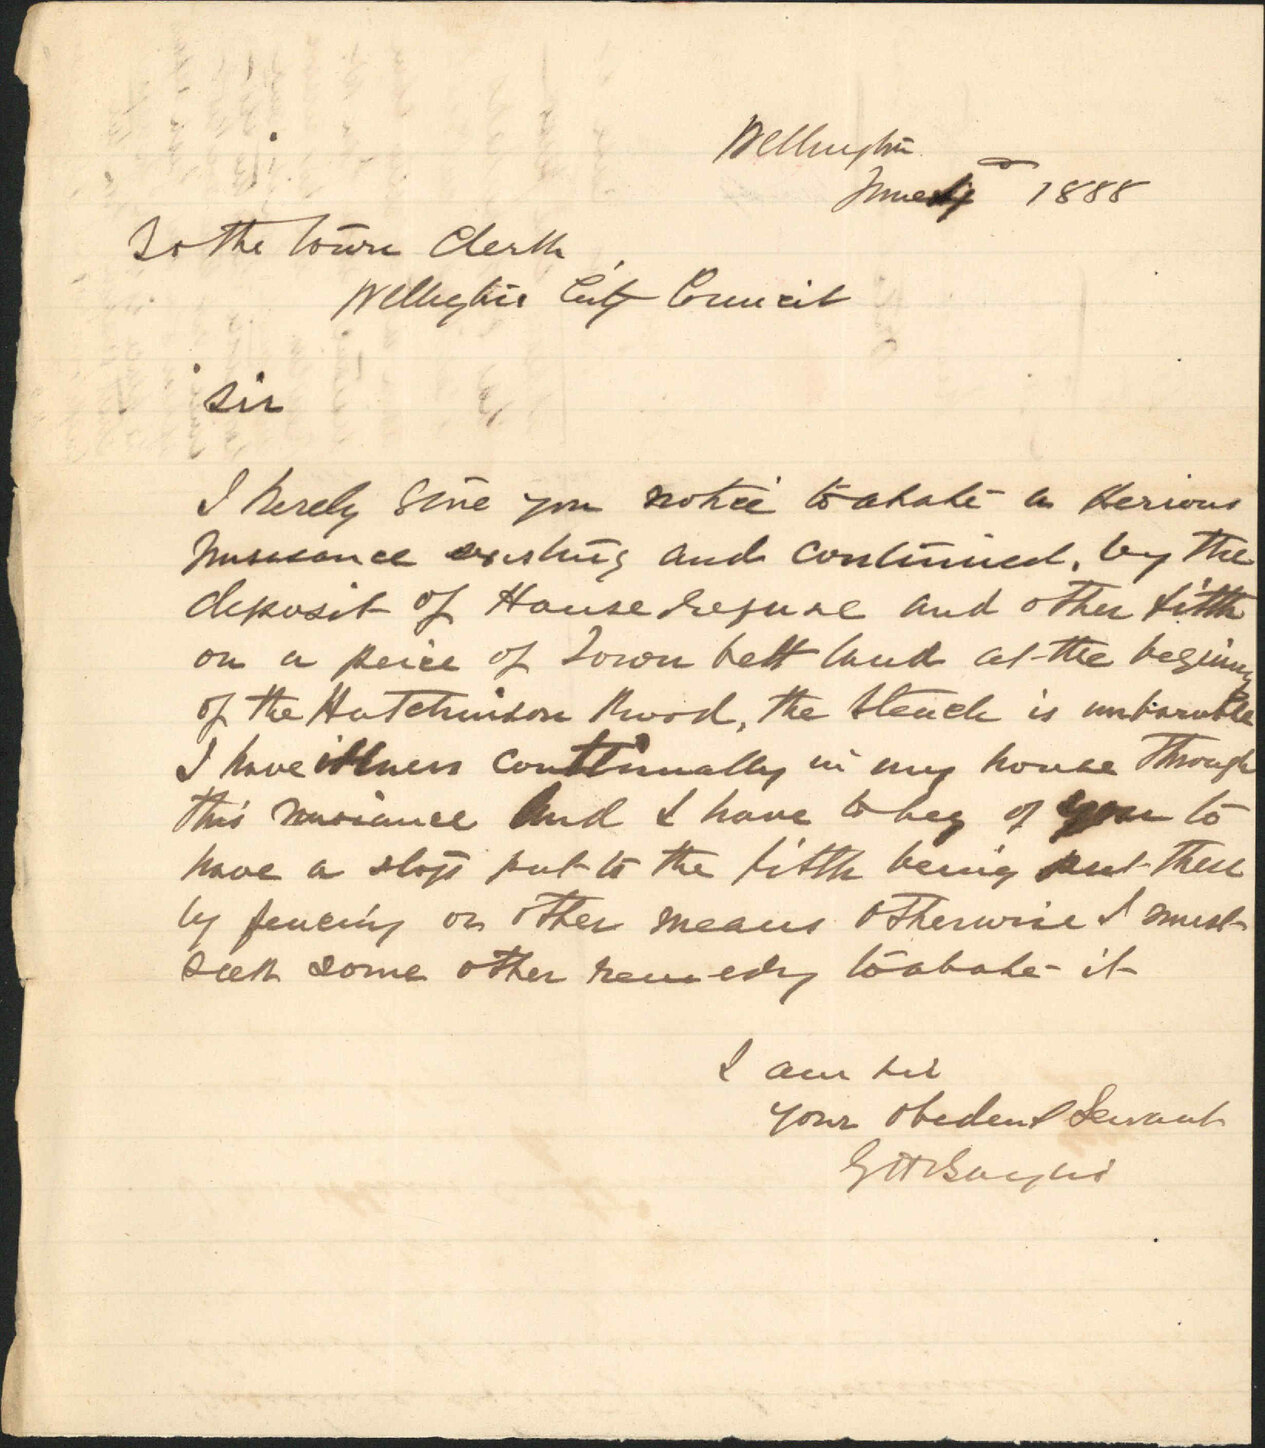 Wellington
June 1888
To the Town Clerk
Wellington City Council
Sir
I herely give you notice to abate a serious
nuisance existing and continued, by the
deposit of House refuse and other filth
on a peice of Town belt land at the begining
of the Hutchinson Road, the stench is unbarable
I have illness continually in my house through
this nusiance And I have to beg of you to
have a stop put to the filth being put there
by fencing or other means otherwise I must
seek some other remedy to abate it
I am sir
your obedent Servant